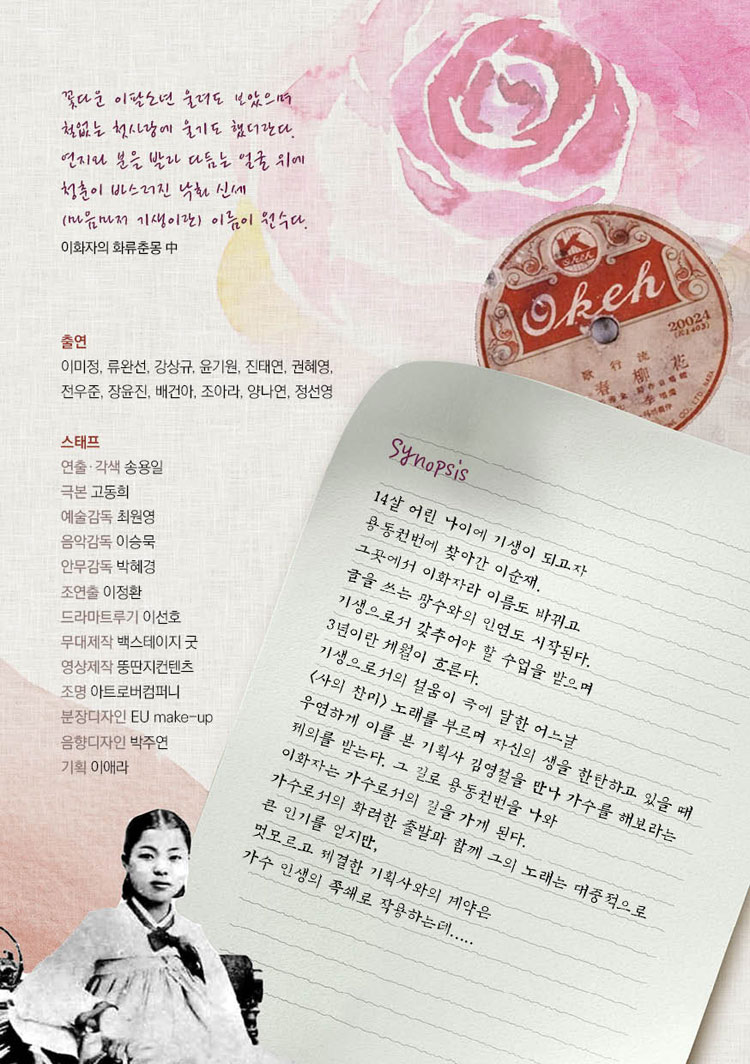 꽃다운 이팔소년 울려도 보았으며
철없는 첫사랑에 울기도 했더란다.
연지와 분을 발라 다듬는 얼굴 위에
청춘이 바스러진 낙화 신세
(마음마저 기생이란) 이름이 원수다.
이화자의 화류춘몽 中
K
Okeh
20024
(K1403)
流行歌
花柳春
출연
이미정, 류완선, 강상규, 윤기원, 진태연, 권혜영,
전우준, 장윤진, 배건아, 조아라, 양나연, 정선영
스태프
연출·각색 송용일
극본 고동희
예술감독 최원영
음악감독 이승묵
안무감독 박혜경
조연출 이정환
드라마트루기 이선호
무대제작 백스테이지 굿
영상제작 뚱딴지컨텐츠
조명 아트로버컴퍼니
분장디자인 EU make-up
음향디자인 박주연
기획 이애라
Synopsis
14살 어린 나이에 기생이 되고자
용동권번에 찾아간 이순재.
그곳에서 이화자라 이름도 바뀌고
글을 쓰는 광수와의 인연도 시작된다.
기생으로서 갖추어야 할 수업을 받으며
3년이란 세월이 흐른다.
기생으로서의 설움이 극에 달한 어느날
<사의 찬미> 노래를 부르며 자신의 생을 한탄하고 있을 때
우연하게 이를 본 기획사 김영철을 만나 가수를 해보라는
제의를 받는다. 그 길로 용동권번을 나와
이화자는 가수로서의 길을 가게 된다.
가수로서의 화려한 출발과 함께 그의 노래는 대중적으로
큰 인기를 얻지만,
멋모르고 체결한 기획사와의 계약은
가수 인생의 족쇄로 작용하는데.....